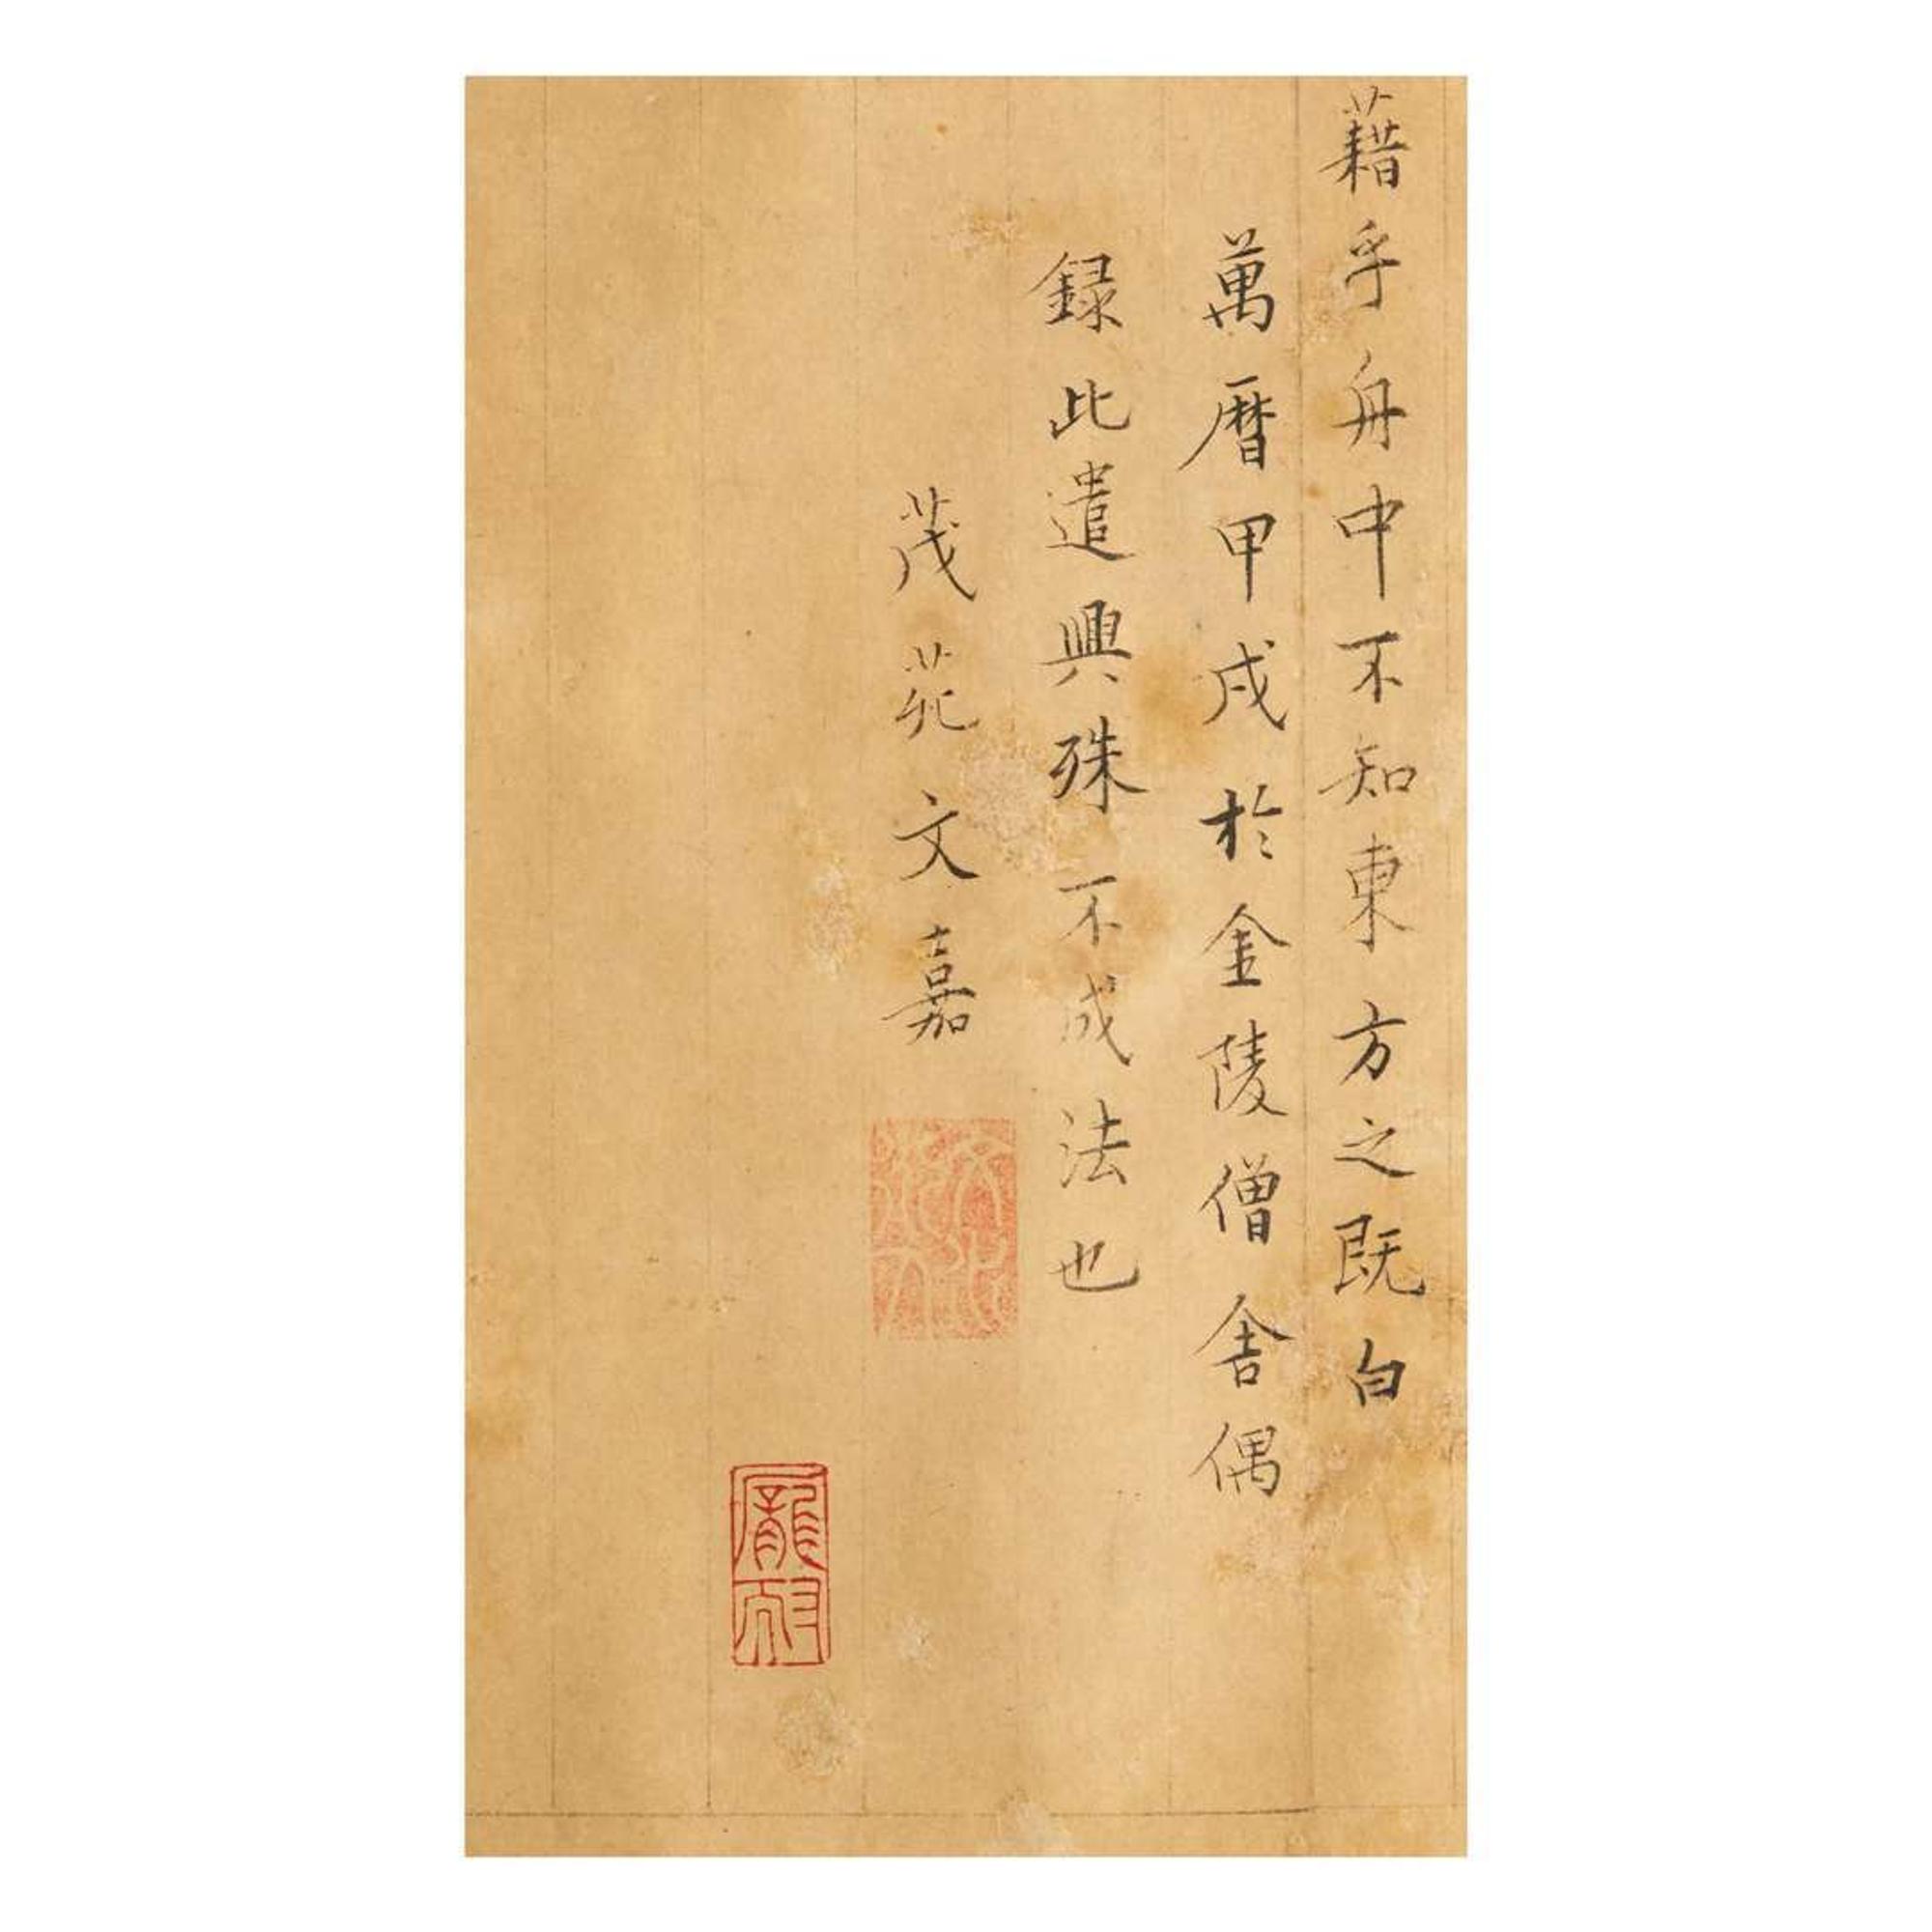 藉乎舟中不知東方之既白
萬曆甲戌於金陵僧舍偶
録此遣興殊不成法也
茂苑文嘉